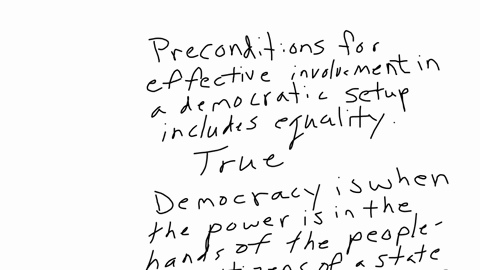 Preconditions for
effective involvement in
a democratic setup
includes equality.
True
Democracy is when
the power is in the
hands of the people-
citizens of a state